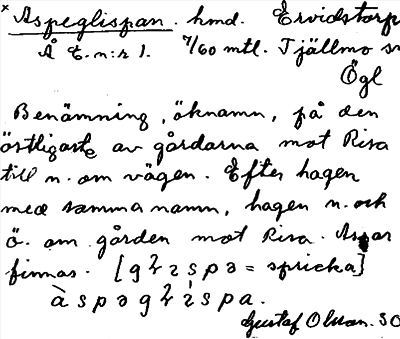 × Aspeglispan. hmd. Ervidstorp
Å E. n:r 1. 7/60 mtl. Tjällmo sn
Ögl
Benämning, öknamn, på den
östligaste av gårdarna mot Risa
till n. om vägen. Efter hagen
med samma namn, hagen n. och
ö. om gården mot Risa. Aspar
finnas. = spricka]
Gustaf Olson. 30